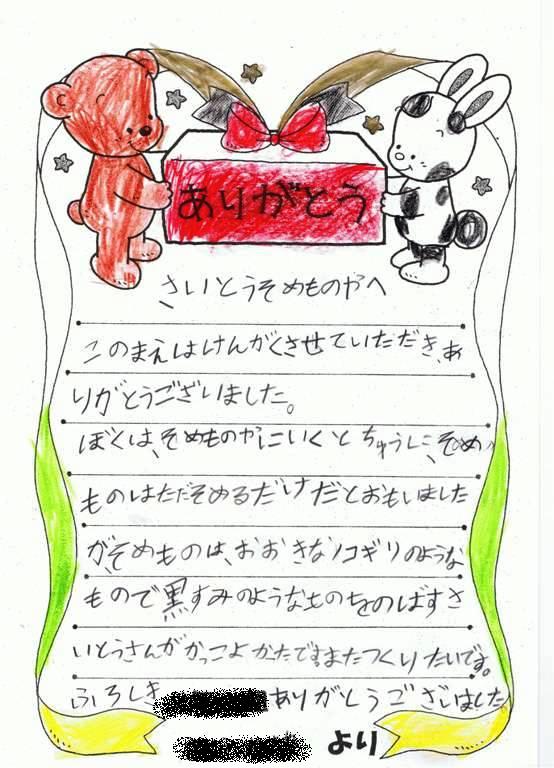 ありがとう
さいとうそめものやへ
このまえはけんがくさせていただき、あ
りがとうございました。
ぼくは、そめものやにいくとちゅうに、そめ
ものはただそめるだけだとおもいました
が、そめものは、おおきなノコギリのような
もので黒すみのようなものをのばすさ
いとうさんがかっこよかたです。またつくりたいです。
ふろしき ありがとうございました
より